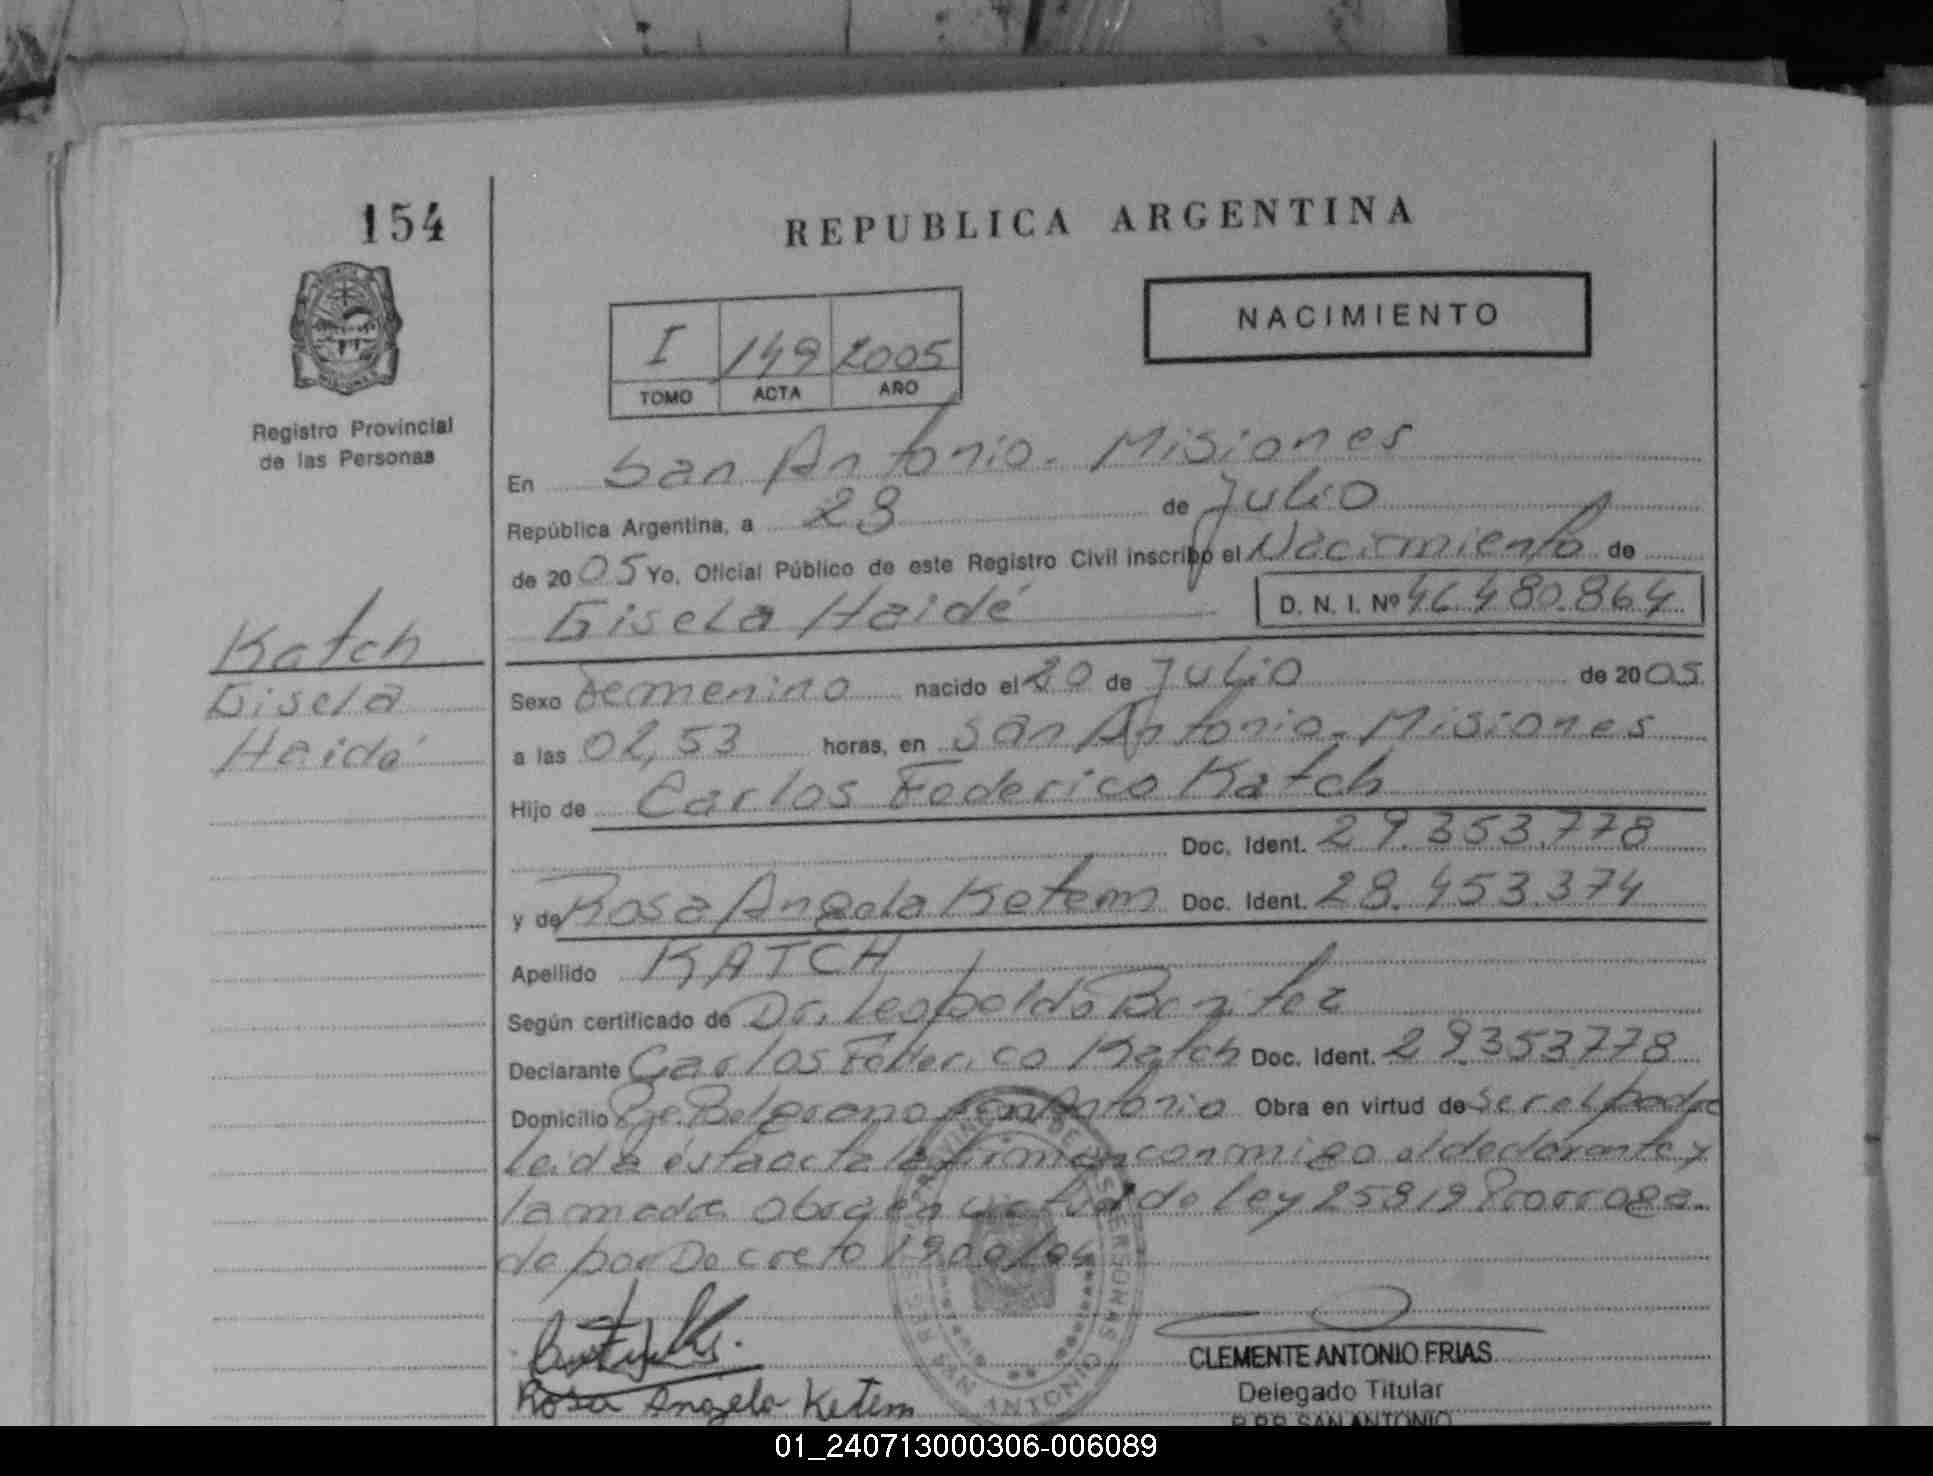 154
REPUBLICA ARGENTINA
NACIMIENTO
I 149 2005
TOMO ACTA AÑO
Registro Provincial
de las Personas
En San Antonio - Misiones
República Argentina, a 23 de Julio
de 2005 Yo, Oficial Público de este Registro Civil inscribo el Nacimiento de
Gisela Haidé D. N. I. Nº 46.480.864
Katch
Gisela
Haidé
Sexo Femenino nacido el 20 de Julio de 2005
a las 02,53 horas, en San Antonio - Misiones
Hijo de Carlos Federico Katch
Doc. Ident. 29.353.778
y de Rosa Angela Ketem Doc. Ident. 28.453.374
Apellido KATCH
Según certificado de Dr. Leopoldo Benitez
Declarante Carlos Federico Katch Doc. Ident. 29353778
Domicilio Pje. Belgrano San Antonio Obra en virtud de ser el padre
leida ésta acta la firman conmigo el declarante y
la madre obra en virtud de ley 25819 Prorroga
da por Decreto 1900/04
Rosa Angela Ketem
CLEMENTE ANTONIO FRIAS
Delegado Titular
R.P.P. SAN ANTONIO
01_240713000306-006089